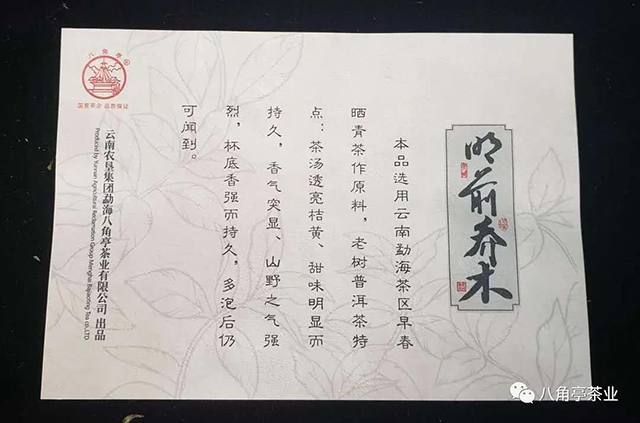 明前乔木
本品选用云南勐海茶区早春
晒青茶作原料，老树普洱茶特
点：茶汤透亮桔黄、甜味明显而
持久，香气突显、山野之气强
烈，杯底香强而持久，多泡后仍
可闻到。
八角亭
国营茶企 品质保证
云南农垦集团勐海八角亭茶业有限公司 出品
Produced by Yunnan Agricultural Reclamation Group Menghai Bajiaoting Tea co.,LTD.
八角亭茶业